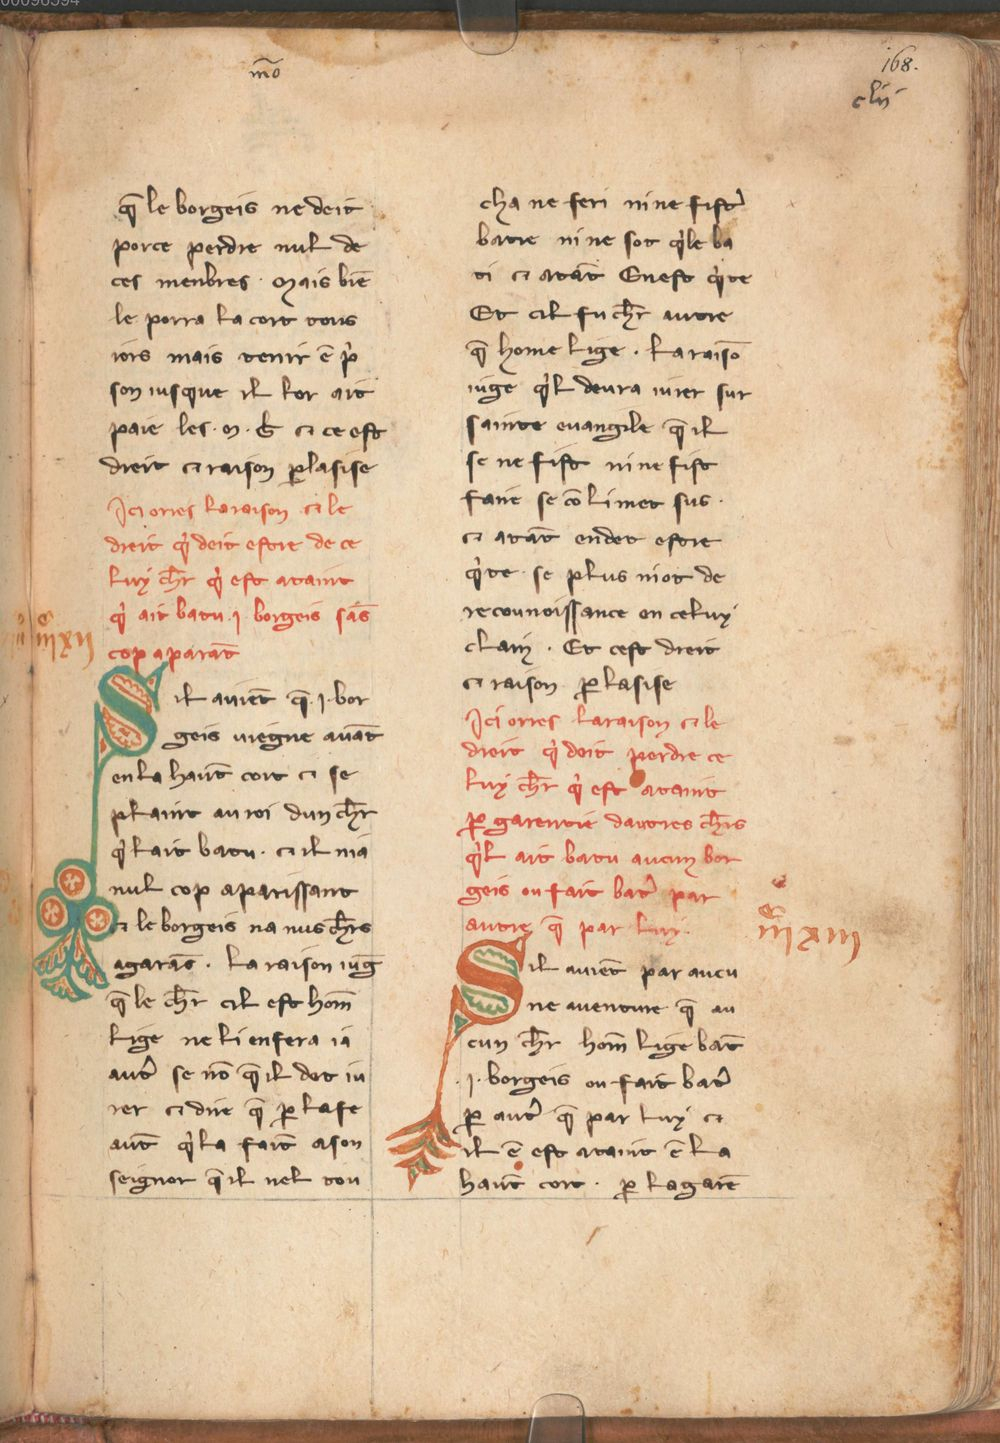 m̄o
168.
clii
q̄ le borgeis ne deit
porce perdre nul de
ces menbres · Mais biē
le porra la cort tous
iors mais tenir ē p̓
son iusque il lor ait
paie les · m · b̵ ⁊ ce est
dreit ⁊ raison ꝑ lasise
Ici orres la raison ⁊ le
dreit q̓ deit estre de ce
luy ch̅r q̓ est ataint
q̓ ait batu · i · borgeis sās
cop aparāt
Sil auiēt q̄ · i · bor
geis viegne auāt
en la haut̄ cort ⁊ se
plaint au roi dun ch̅r
q̓ lait batu · ⁊ il nia
nul cop aparissant
⁊ le borgeis na nus ch̅rs
a garās · La raison iuḡ
q̄ le ch̅r cil est hom̄
lige ne li enfera ia
aut̓ se nō q̄ il det iu
rer ⁊ dire q̄ ꝑ la fe
aut̄ q̓ la fait̄ a son
seignor q̄ il nel tou
cha ne feri ni ne fist̓
batre ni ne sot q̓ le ba
ti ⁊ atāt En est q̓te
Et cil fu ch̅r autre
q̄ home lige · La raisō
iuge q̓l deura iurer sur
sainte euangile q̄ il
se ne fist ni ne fist
faire se cō li met sus ·
⁊ atāt en det estre
q̓te · se plus niot de
recounoissance en celuy
claim · Et cest dreit
⁊ raison ꝑ lasise
Ici orres la raison ⁊ le
dreit q̓ doit perdre ce
luy ch̅r q̓ est ataint
ꝑ garentie dautres ch̅rs
q̓l ait batu aucun bor
geis ou fait bat̓ par
autre q̄ par luy ·
Sil auiēt par aucu
ne auenture q̄ au
cun ch̅r hom̄ lige bat̄
· i · borgeis ou fait bat̓
ꝑ aut̓ q̄ par luy ⁊
il ē est ataint ē la
haut̄ cort · ꝑ la garē